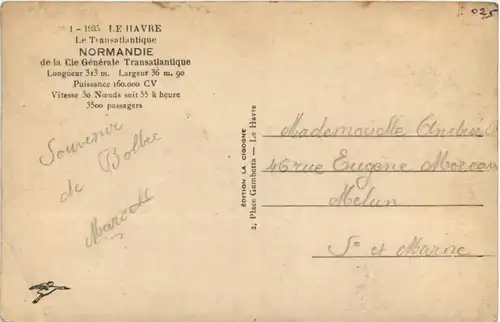 1 - 1935 LE HAVRE
Le Transatlantique
NORMANDIE
de la Cie Générale Transatlantique
Longueur 313 m. Largeur 36 m. 90
Puissance 160.000 CV
Vitesse 30 Nœuds soit 55 k heure
3500 passagers
Souvenir
de Bolbec
Marcel
EDITION LA CIGOGNE
2, Place Gambetta — Le Havre
025
Mademoiselle Andrée
46 rue Eugène Moreau
Melun
S. et Marne